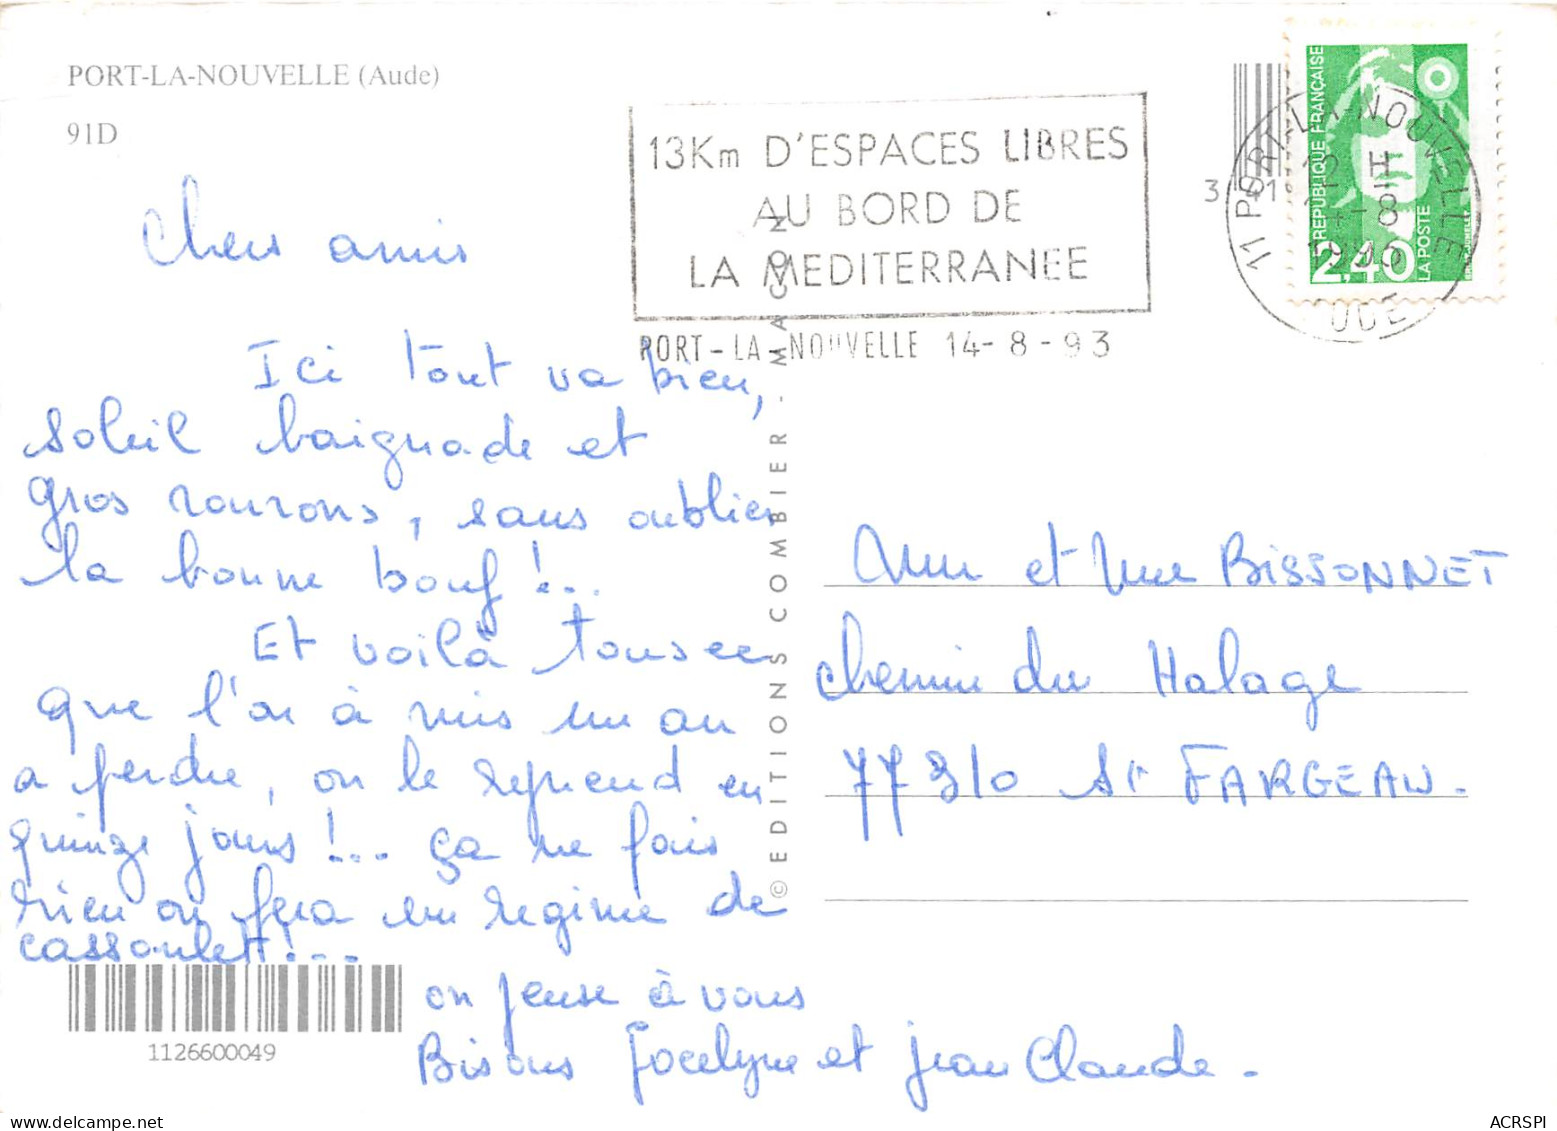 PORT-LA-NOUVELLE (Aude)
91D
13Km D'ESPACES LIBRES
AU BORD DE
LA MEDITERRANEE
PORT-LA-NOUVELLE 14-8-93
11 PORT-LA-NOUVELLE
15 H
14-8
1993
AUDE
REPUBLIQUE FRANÇAISE
2,40
LA POSTE
3
Chers amis
Ici tout va bien,
soleil baignade et
gros ronrons, sans oublier
la bonne bouf !...
Et voilà tous ce
que l'on à mis un an
a perdre, on le reprend en
quinze jours !... ça ne fais
rien on fera un regime de
cassoulett !...
on pense à vous
Bisous Jocelyne et jean Claude.
© EDITIONS COMBIER - MACON
Mr et Mme BISSONNET
Chemin du Halage
77310 St FARGEAU.
1126600049
ACRSPI